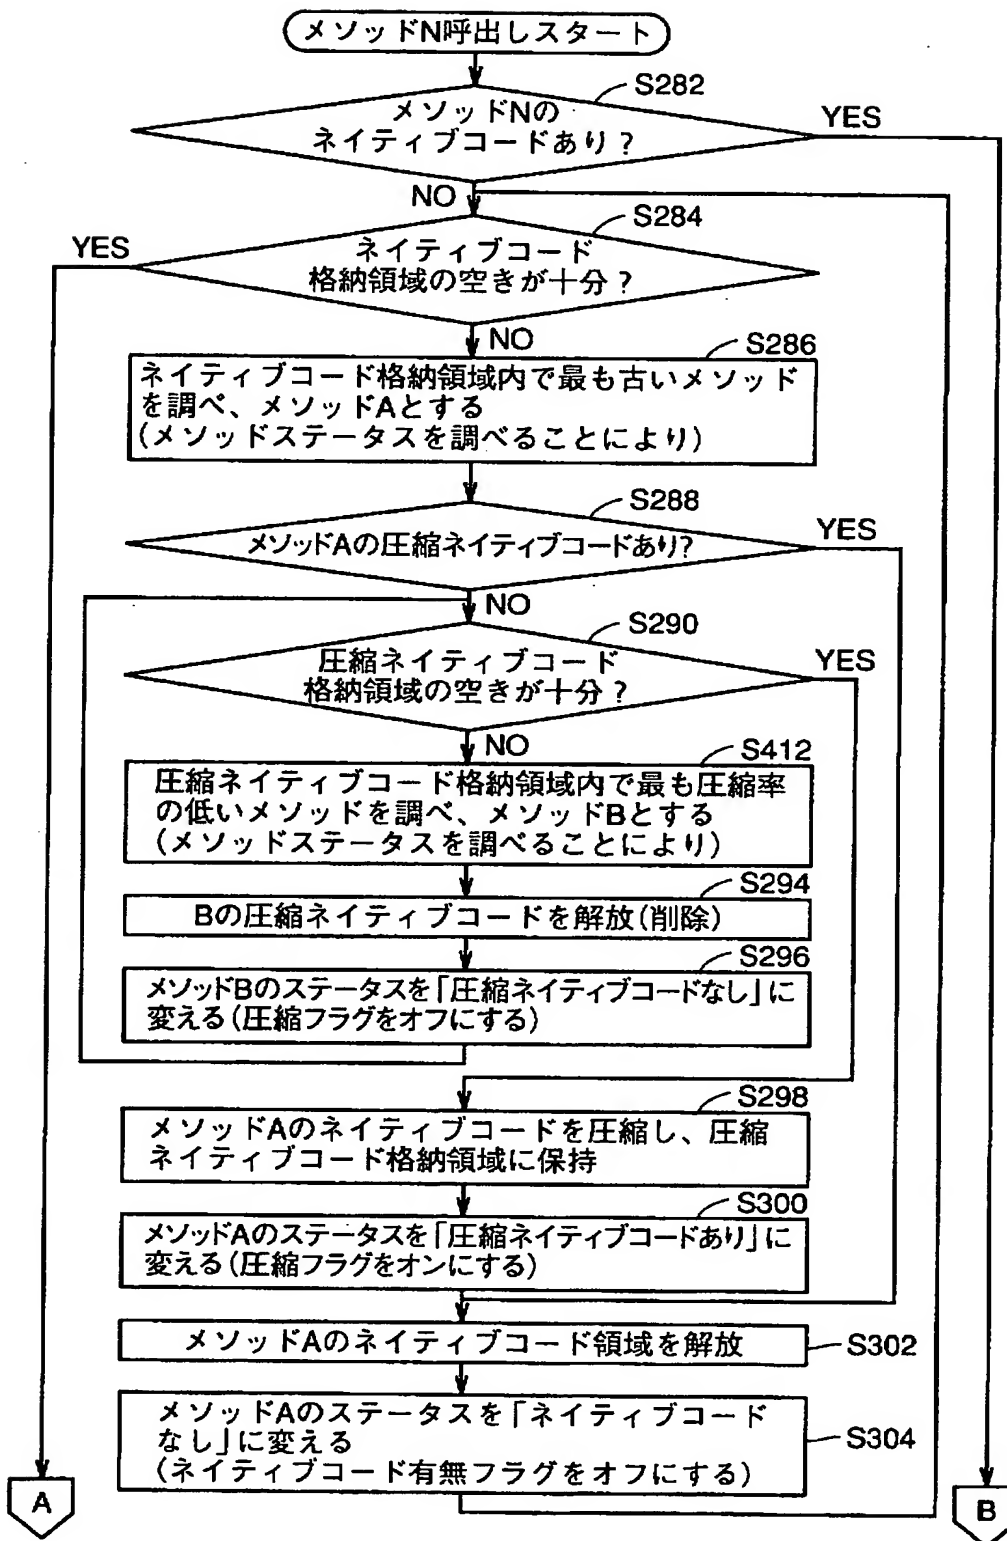 メソッドN呼出しスタート
S282
メソッドNの
ネイティブコードあり？
YES
NO
S284
YES
ネイティブコード
格納領域の空きが十分？
NO
S286
ネイティブコード格納領域内で最も古いメソッド
を調べ、メソッドAとする
(メソッドステータスを調べることにより)
S288
メソッドAの圧縮ネイティブコードあり?
YES
NO
S290
圧縮ネイティブコード
格納領域の空きが十分？
YES
NO
S412
圧縮ネイティブコード格納領域内で最も圧縮率
の低いメソッドを調べ、メソッドBとする
(メソッドステータスを調べることにより)
S294
Bの圧縮ネイティブコードを解放(削除)
S296
メソッドBのステータスを「圧縮ネイティブコードなし」に
変える(圧縮フラグをオフにする)
S298
メソッドAのネイティブコードを圧縮し、圧縮
ネイティブコード格納領域に保持
S300
メソッドAのステータスを「圧縮ネイティブコードあり」に
変える(圧縮フラグをオンにする)
メソッドAのネイティブコード領域を解放
S302
メソッドAのステータスを「ネイティブコード
なし」に変える
(ネイティブコード有無フラグをオフにする)
S304
A
B